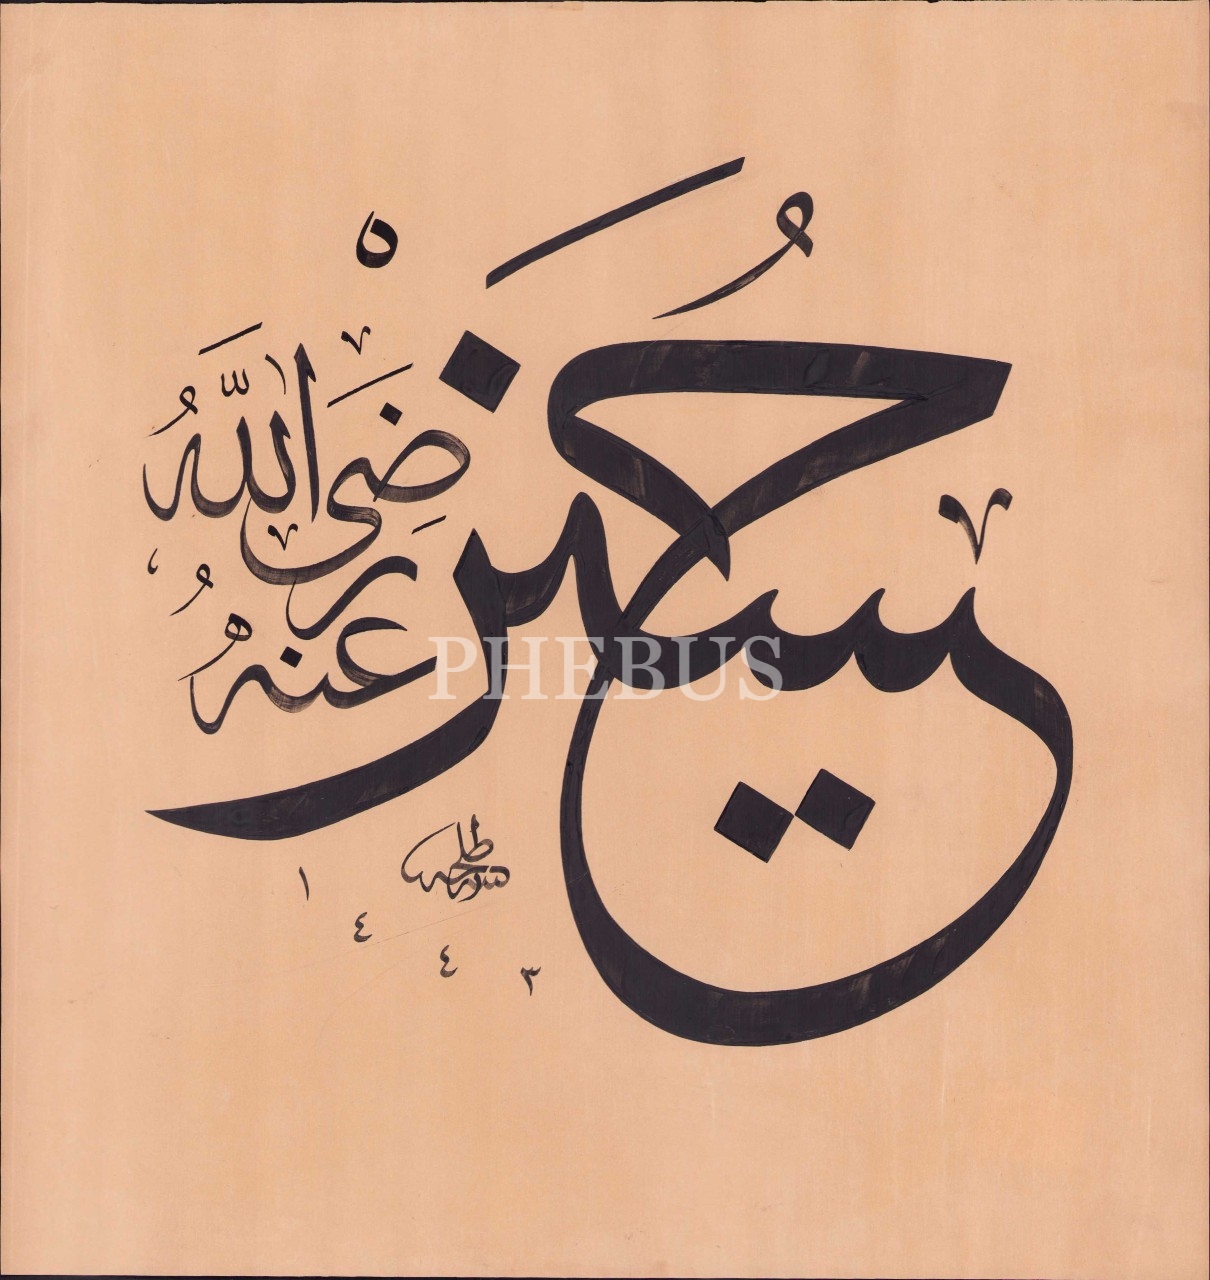 حُسَيْن
رَضِيَ اللَّهُ عَنْهُ
١٤٤٣
PHEBUS